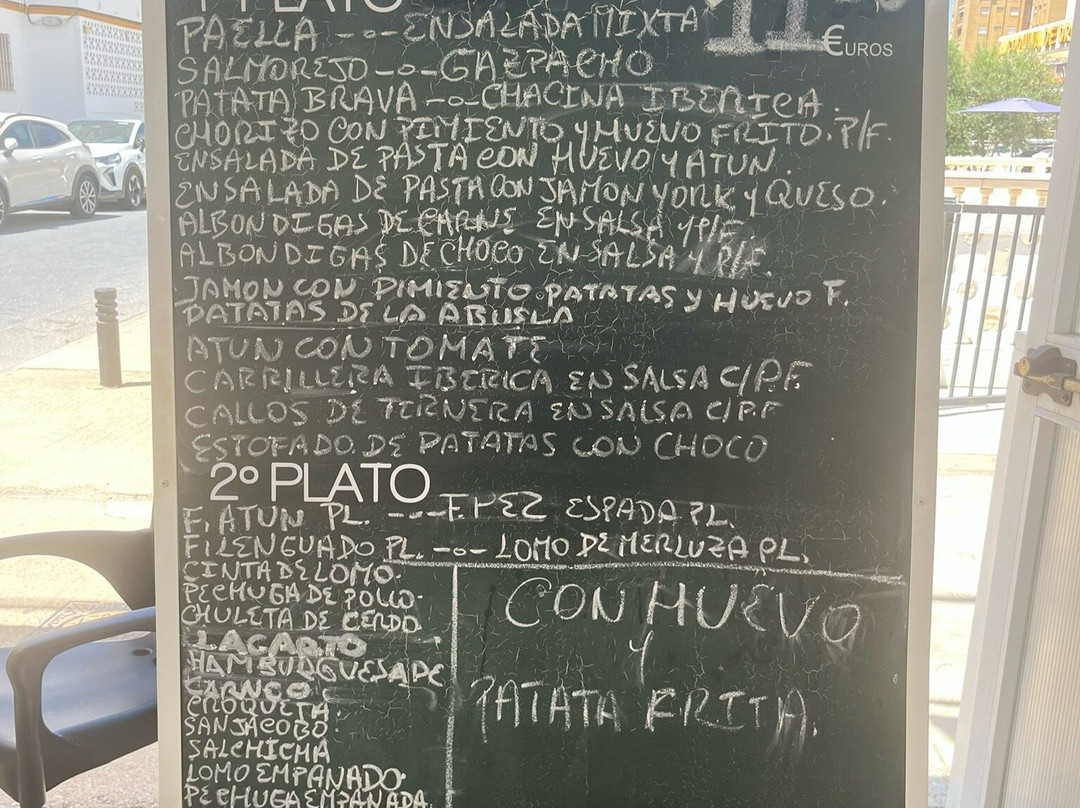 1º PLATO
PAELLA -o- ENSALADA MIXTA
11
€UROS
SALMOREJO -o- GAZPACHO
PATATA BRAVA -o- CHACINA IBERICA.
CHORIZO CON PIMIENTO Y HUEVO FRITO. P/F.
ENSALADA DE PASTA CON HUEVO Y ATUN.
ENSALADA DE PASTA CON JAMON YORK Y QUESO.
ALBONDIGAS DE CARNE EN SALSA Y P/F
ALBONDIGAS DE CHOCO EN SALSA Y P/F.
JAMON CON PIMIENTO PATATAS Y HUEVO F.
PATATAS DE LA ABUELA
ATUN CON TOMATE
CARRILLERA IBERICA EN SALSA C/P.F.
CALLOS DE TERNERA EN SALSA C/P.F
ESTOFADO DE PATATAS CON CHOCO
2º PLATO
F. ATUN PL. --- F. PEZ ESPADA PL.
FILENGUADO PL. -o- LOMO DE MERLUZA PL.
CINTA DE LOMO.
PECHUGA DE POLLO.
CHULETA DE CERDO.
LAGARTO
HAMBURGUESA DE
CROQUETA.
SAN JACOBO.
SALCHICHA
LOMO EMPANADO.
PECHUGA EMPANADA.
CON HUEVO
Y
PATATA FRITA.